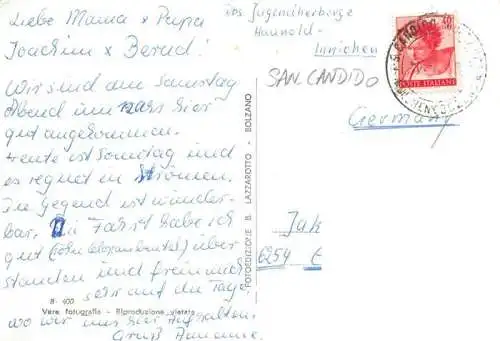 Liebe Mama + Papa
Joachim + Bernd!
Wir sind am Samstag
Abend um hier
gut angekommen.
Heute ist Sonntag und
es regnet in Strömen.
Die Gegend ist wunder-
bar. Die Fahrt habe ich
gut über-
standen und freu mich
sehr auf die Tage,
wo wir uns hier aufhalten.
Gruß
B - 400
Vera fotografia - Riproduzione vietata
FOTOEDIZIONE B. LAZZAROTTO - BOLZANO
Jugendherberge
Innichen
SAN CANDIDO
POSTE ITALIANE
Germany
6254